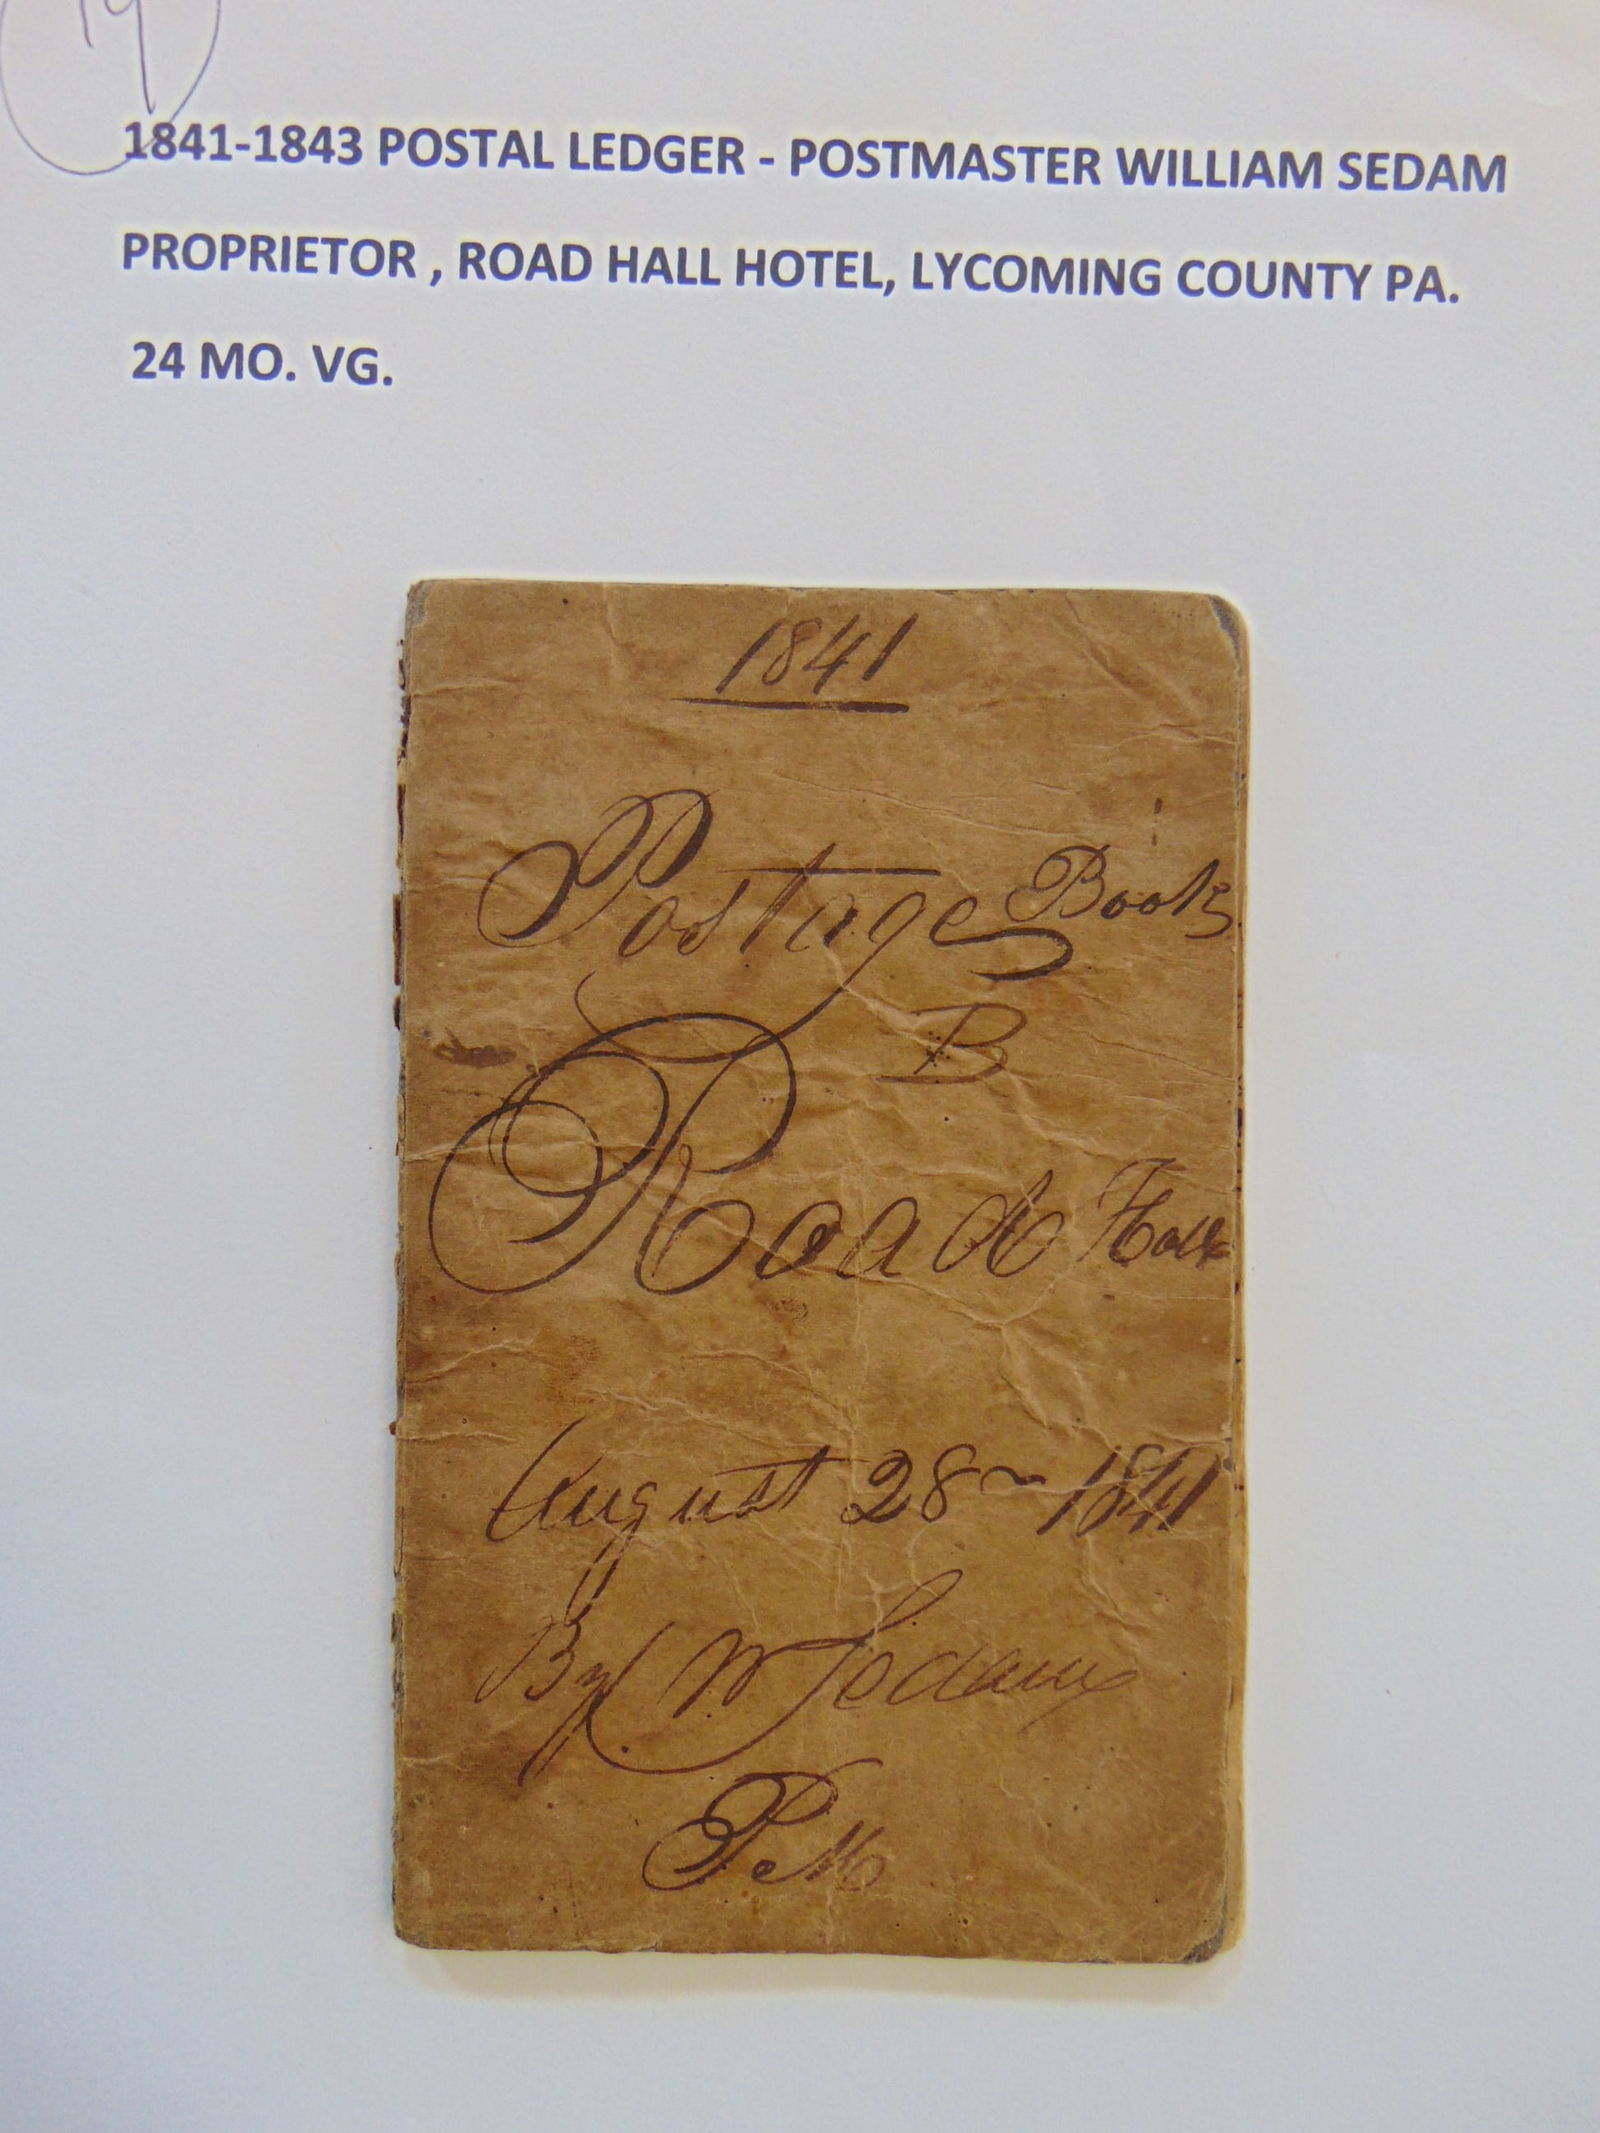 19
1841-1843 POSTAL LEDGER - POSTMASTER WILLIAM SEDAM
PROPRIETOR , ROAD HALL HOTEL, LYCOMING COUNTY PA.
24 MO. VG.
1841
Postage Book
B
Road Hall
August 28 ~ 1841
By W Sedam
P. M